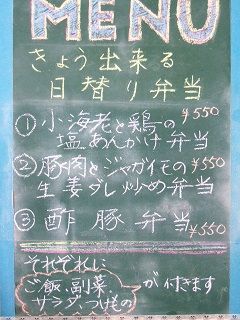 MENU
きょう出来る
日替り弁当
①小海老と鶏の ¥550
塩あんかけ弁当
②豚肉とジャガイモの ¥550
生姜ダレ炒め弁当
③酢豚弁当 ¥550
それぞれに
ご飯、副菜、
サラダ、つけもの
が付きます